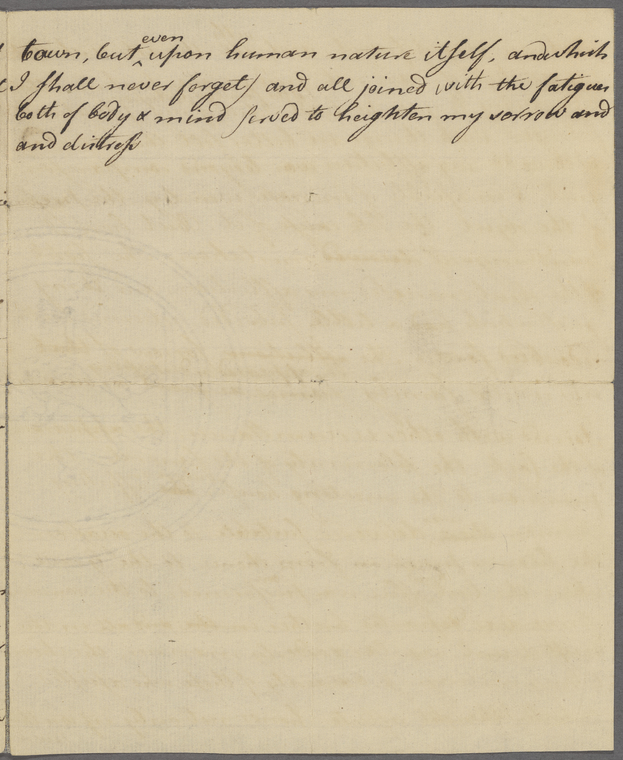 town, but even upon human nature itself, and which
I shall never forget) and all joined with the fatigues
both of body & mind served to heighten my sorrow and
and distress